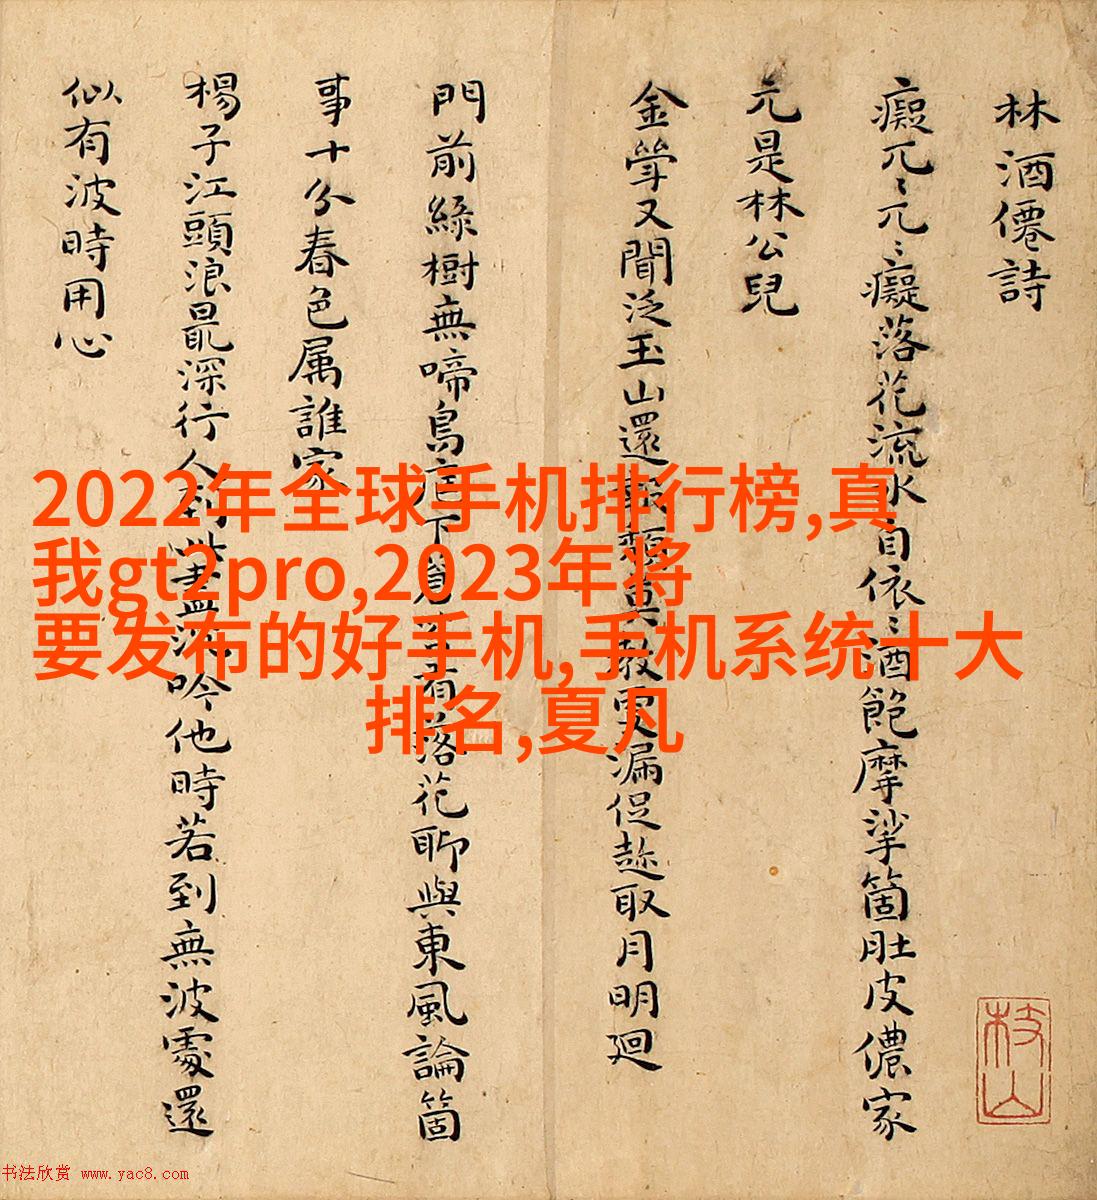 林酒僊詩
癡兀〻兀〻癡落花流水自依〻酒飽摩挲箇肚皮儂家
元是林公兒
金斝又聞泛玉山還報頽莫教更漏促趂取月明廻
門前綠樹無啼鳥庭下有落花聊與東風論箇
事十分春色属誰家
楊子江頭浪最深行人到此盡沉吟他時若到無波處還
似有波時用心
枝山
2022年全球手机排行榜,真
我gt2pro,2023年将
要发布的好手机,手机系统十大
排名,夏凡
书法欣赏 www.yac8.com